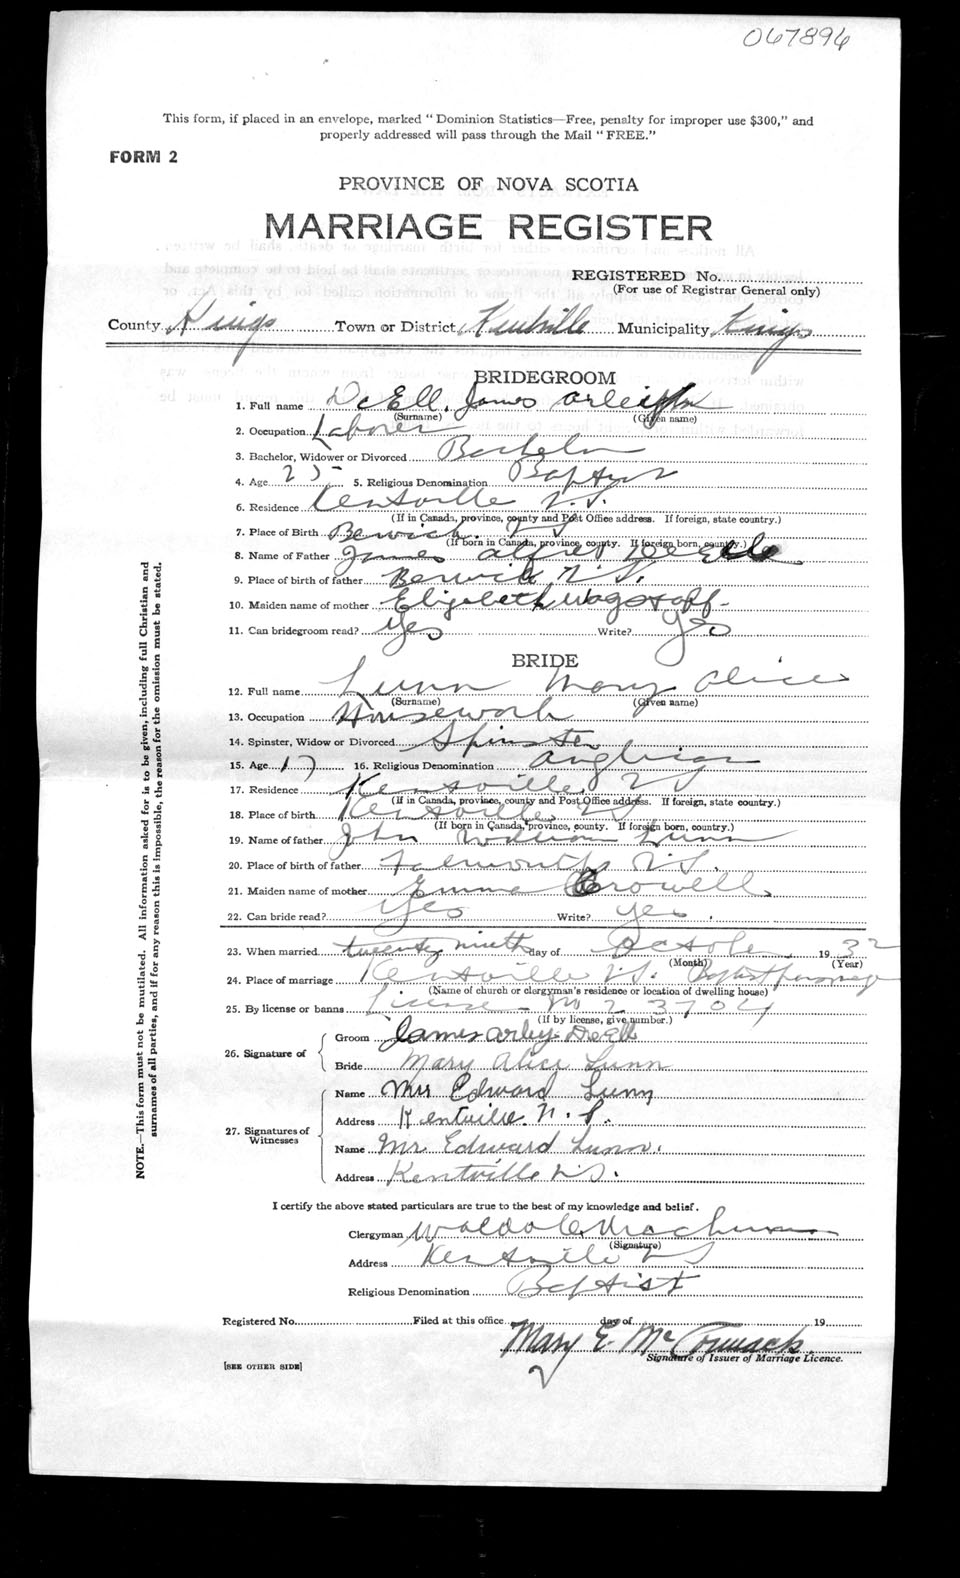 067896
This form, if placed in an envelope, marked "Dominion Statistics—Free, penalty for improper use $300," and
properly addressed will pass through the Mail "FREE."
FORM 2
PROVINCE OF NOVA SCOTIA
MARRIAGE REGISTER
REGISTERED No.
(For use of Registrar General only)
County Kings Town or District Kentville Municipality Kings
BRIDEGROOM
1. Full name DeEll, James Arleigh
(Surname) (Given name)
2. Occupation Laborer
3. Bachelor, Widower or Divorced Bachelor
4. Age 25 5. Religious Denomination Baptist
6. Residence Kentville N S.
(If in Canada, province, county and Post Office address. If foreign, state country.)
7. Place of Birth Berwick N S
(If born in Canada, province, county. If foreign born, country.)
8. Name of Father James Alfred
9. Place of birth of father Berwick N S.
10. Maiden name of mother Elizabeth Wagstaff
11. Can bridegroom read? Yes Write? Yes
BRIDE
12. Full name Lunn Mary Alice
(Surname) (Given name)
13. Occupation Housework
14. Spinster, Widow or Divorced Spinster
15. Age 17 16. Religious Denomination Anglican
17. Residence Kentville N S
(If in Canada, province, county and Post Office address. If foreign, state country.)
18. Place of birth Kentville N S
(If born in Canada, province, county. If foreign born, country.)
19. Name of father John William Lunn
20. Place of birth of father Falmouth N S.
21. Maiden name of mother Emma Crowell
22. Can bride read? Yes Write? yes.
23. When married twenty ninth day of October 1932
(Month) (Year)
24. Place of marriage Kentville N S. Baptist parsonage
(Name of church or clergyman's residence or location of dwelling house)
25. By license or banns License - No 23704
(If by license, give number.)
26. Signature of
Groom James Arley DeEll
Bride Mary Alice Lunn
27. Signatures of Witnesses
Name Mrs Edward Lunn
Address Kentville. N. S.
Name Mr Edward Lunn.
Address Kentville N S.
I certify the above stated particulars are true to the best of my knowledge and belief.
Clergyman Waldo C
(Signature)
Address Kentville N S
Religious Denomination Baptist
Registered No. Filed at this office day of 19
Mary E. McCormack
Signature of Issuer of Marriage Licence.
[SEE OTHER SIDE]
NOTE.—This form must not be mutilated. All information asked for is to be given, including full Christian and
surnames of all parties, and if for any reason this is impossible, the reason for the omission must be stated.